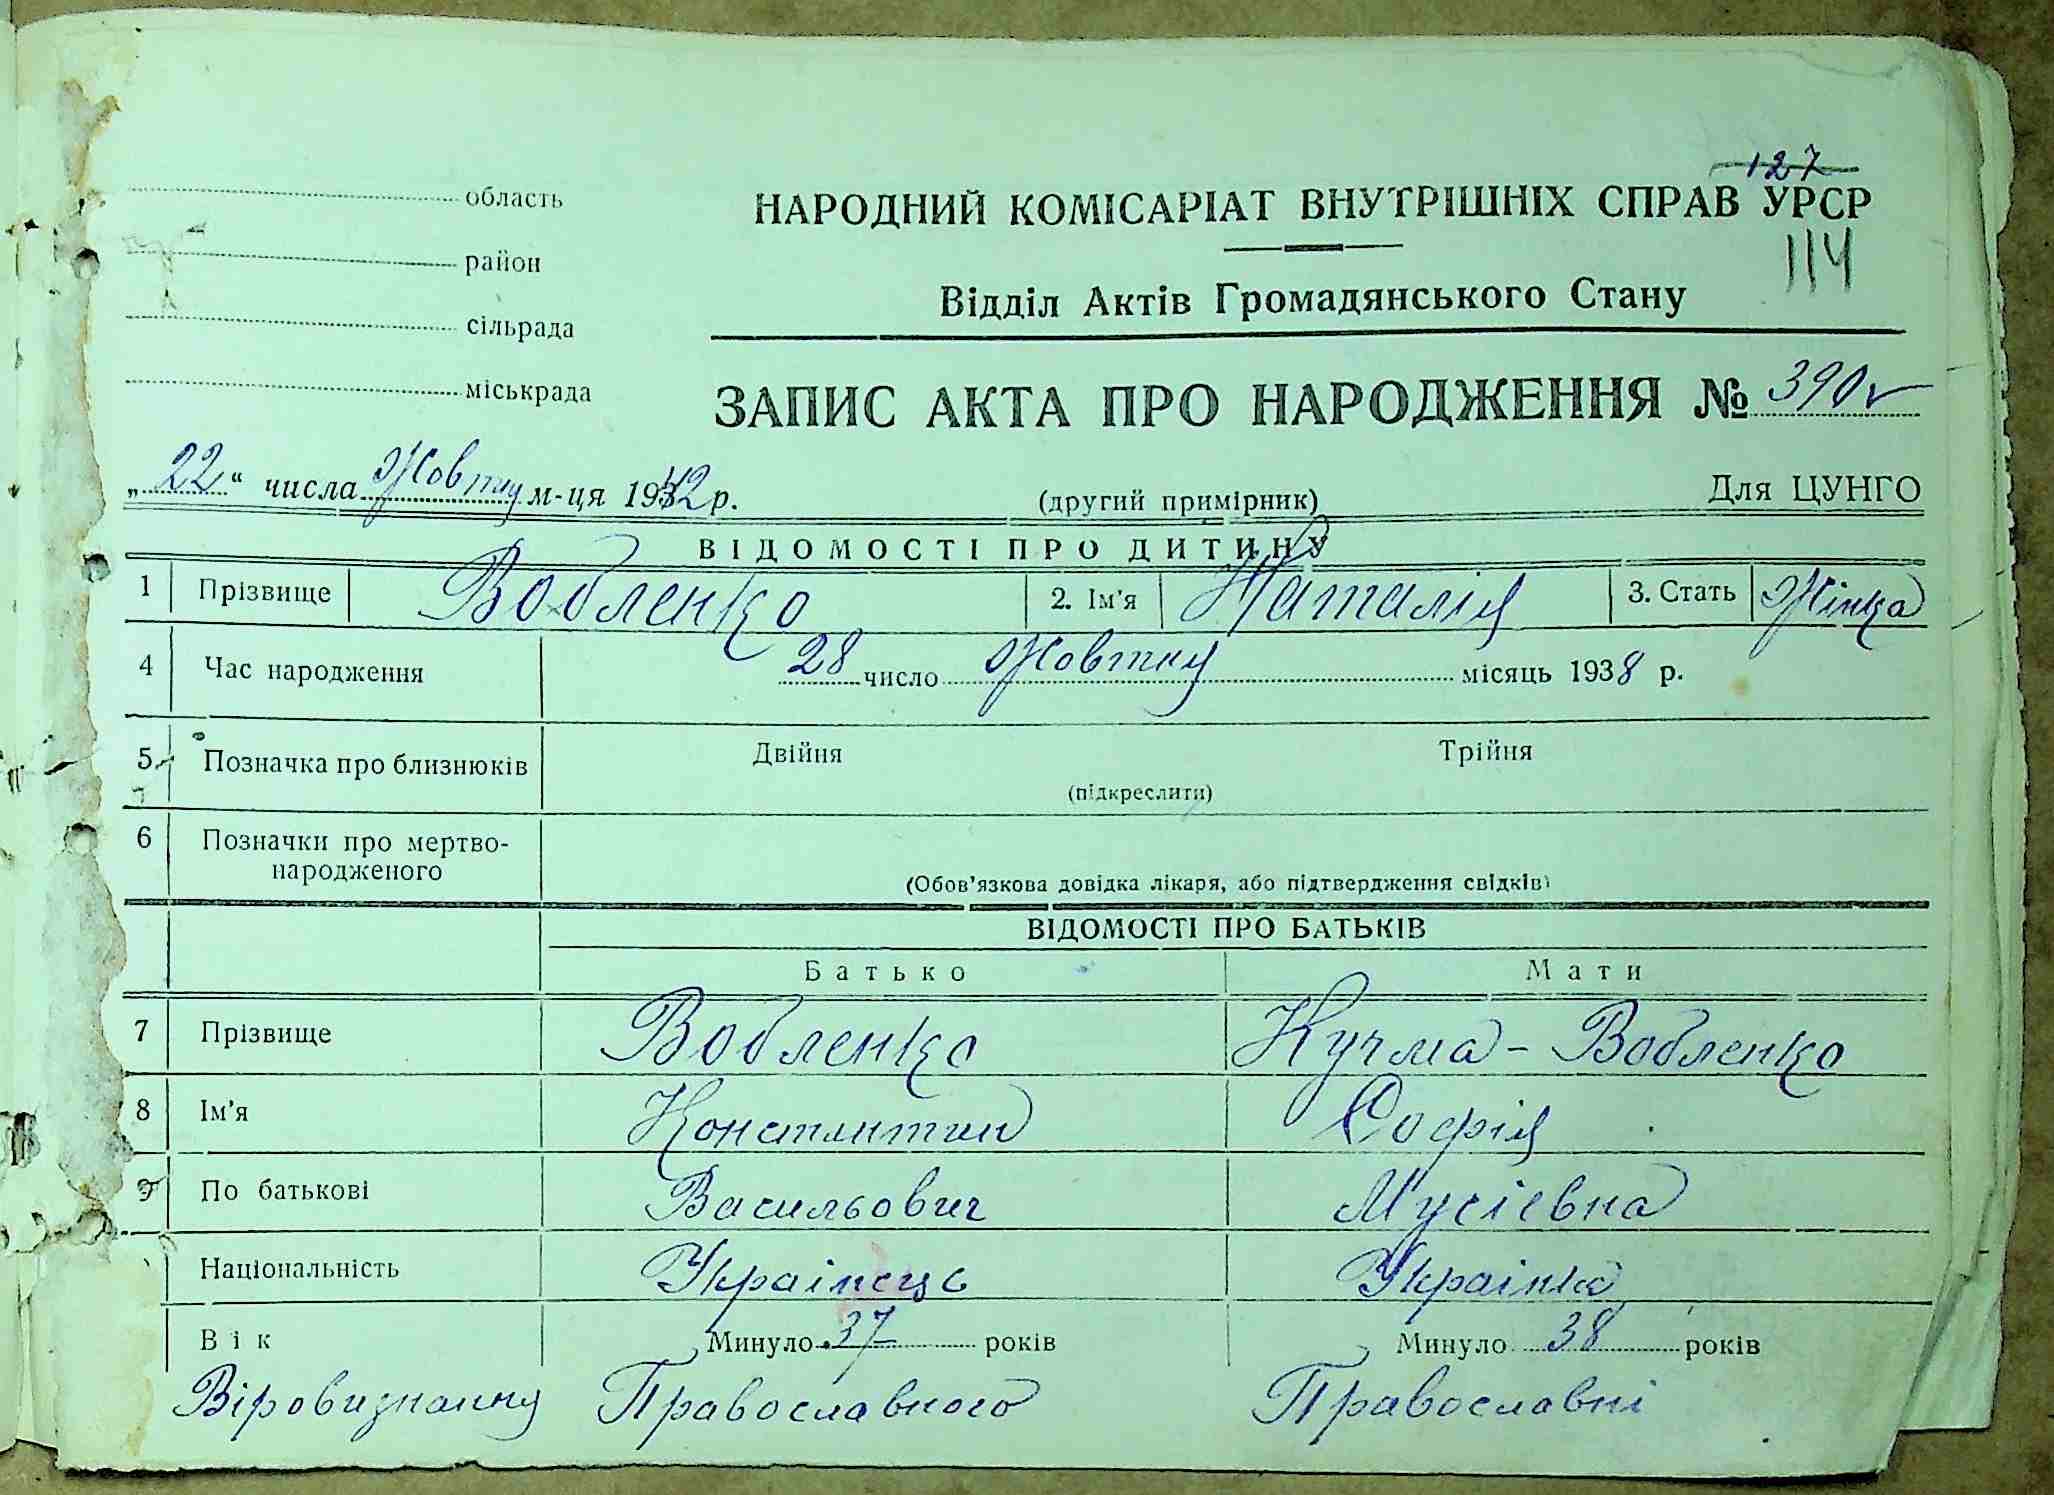 127
область
НАРОДНИЙ КОМІСАРІАТ ВНУТРІШНІХ СПРАВ УРСР
114
район
Відділ Актів Громадянського Стану
сільрада
міськрада
ЗАПИС АКТА ПРО НАРОДЖЕННЯ № 390
„22“ числа Жовтня м-ця 1942 р.
(другий примірник)
Для ЦУНГО
ВІДОМОСТІ ПРО ДИТИНУ
1 Прізвище Вобленко 2. Ім’я Наталія 3. Стать Жінка
4 Час народження 28 число Жовтня місяць 1938 р.
5 Позначка про близнюків Двійня Трійня
(підкреслити)
6 Позначки про мертво-
народженого
(Обов’язкова довідка лікаря, або підтвердження свідків)
ВІДОМОСТІ ПРО БАТЬКІВ
Батько Мати
7 Прізвище Вобленко Кучма - Вобленко
8 Ім’я Константин Софія
9 По батькові Васильович Мусіевна
Національність Украінець Украінка
Вік Минуло 37 років Минуло 38 років
Віровизнання Православного Православні